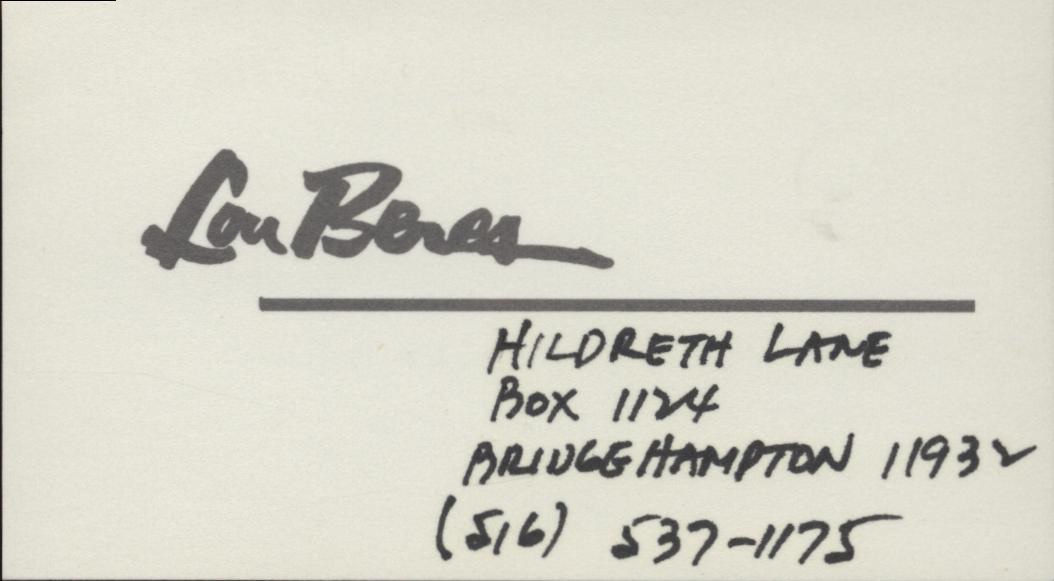 Lou Beres
HILDRETH LANE
BOX 1124
BRIDGEHAMPTON 11932
(516) 537-1175